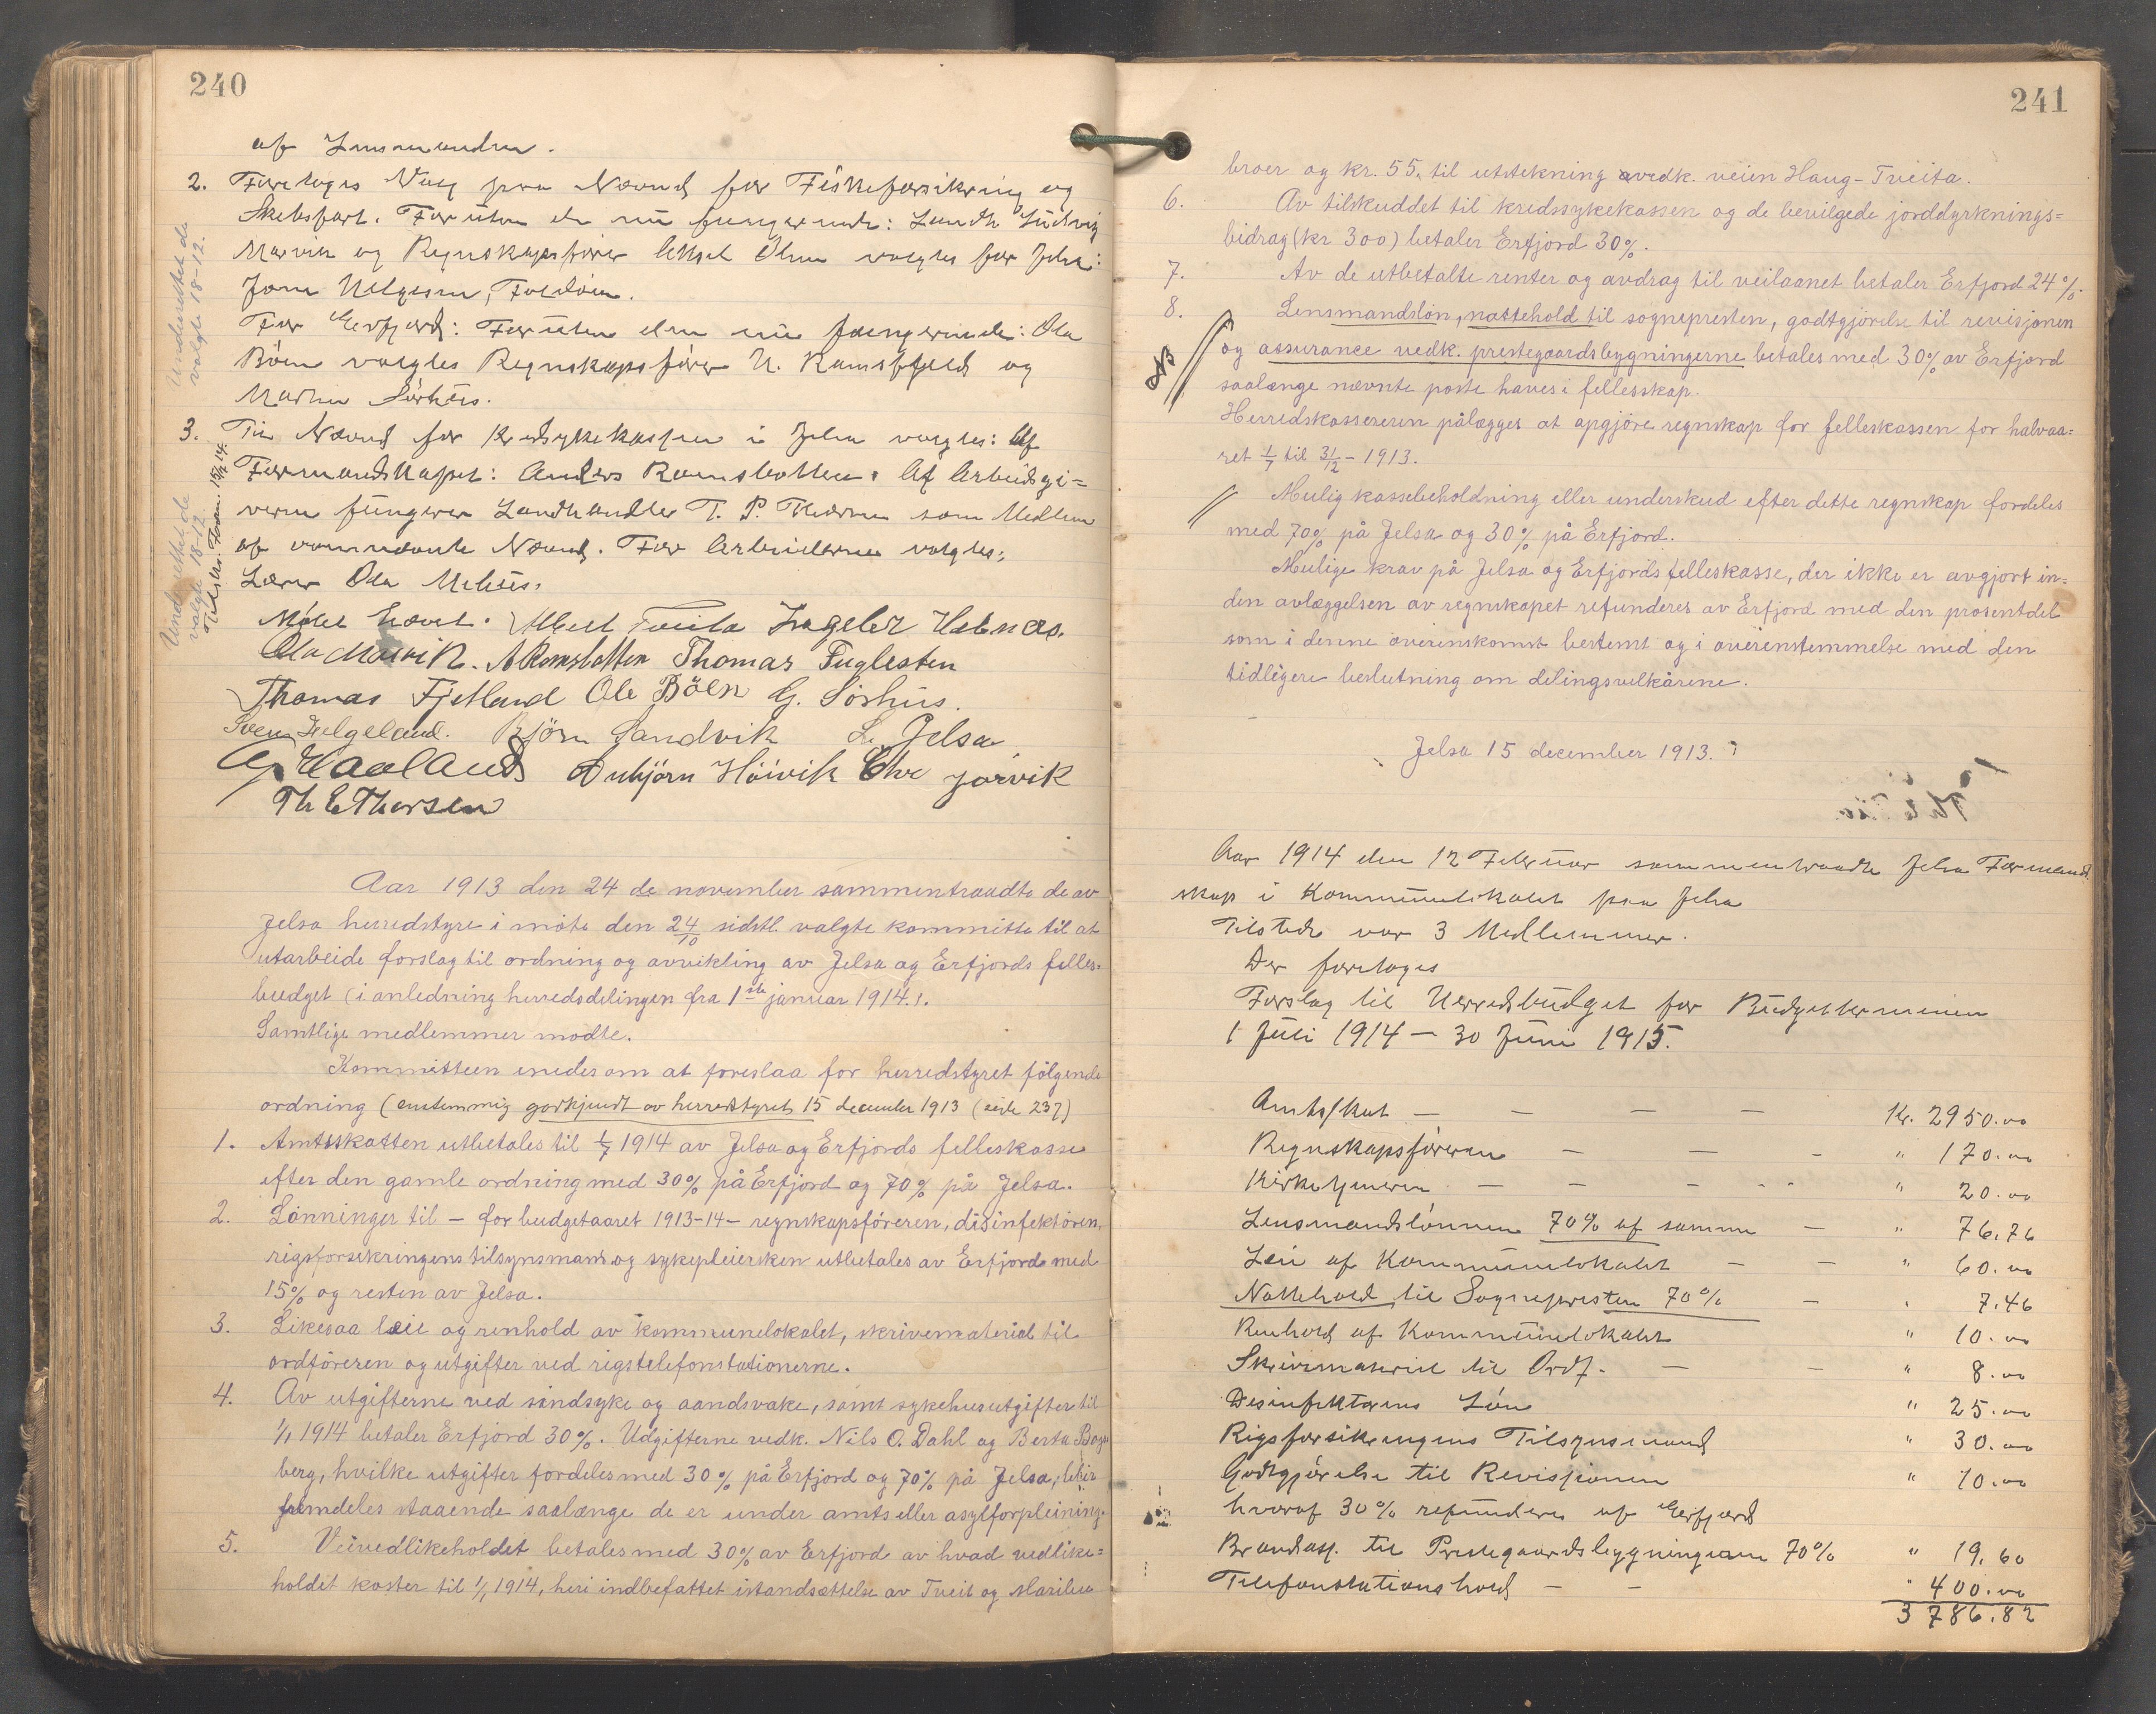 240
af Lensmanden.
2. Foretoges Valg paa Nævnd for Fiskeforsikring og
Skibsfart. Foruten de nu fungerende: Landh. Ludvig
Marvik og Regnskapsfører Aksel Ohm valgtes for Jelsa:
Jone Helgesen, Foldøen.
For Erfjord: Foruten den nu fungerende: Ola
Böen valgtes Regnskapsfører H. Ramsfjeld og
Martin Sörhus.
Underrettet de
valgte 18-12.
3. Til Nævnd for Kredssykekassen i Jelsa valgtes: Af
Formandskapet: Anders Ramsbotten. Af Arbeidsgi=
verne fungerer Landhandler T. P. Hærnes som Medlem
af vornævnte Nævnd. For Arbeiderne valgtes:
Lærer Ola Mehus.
Underrettet de
valgte 18-12.
Mötet hævet. Albert Tveita Ingeler Hebnes.
Ola Marvik. A Ramsbotten Thomas Fuglesten
Thomas Fjetland Ole Böen G. Sörhus.
Sven Helgeland. Björn Sandvik L. Jelsa
G. Haaland Arnbjörn Höivik Chr Jørvik
Th E Thorsen
Aar 1913 den 24 de november sammentraadte de av
Jelsa herredstyre i möte den 24/10 sidstl. valgte kommitte til at
utarbeide forslag til ordning og avvikling av Jelsa og Erfjords felles=
budget (i anledning herredsdelingen fra 1ste januar 1914.).
Samtlige medlemmer mødte.
Kommitteen enedes om at foreslaa for herredstyret følgende
ordning (enstemmig godkjendt av herredstyret 15 december 1913 (side 237)
1. Amtsskatten utbetales til 1/7 1914 av Jelsa og Erfjords felleskasse
efter den gamle ordning med 30% på Erfjord og 70% på Jelsa.
2. Lönninger til – for budgetaaret 1913-14 – regnskapsföreren, disinfektören,
rigsforsikringens tilsynsmand og sykepleiersken utbetales av Erfjord med
15% og resten av Jelsa.
3. Likesaa leie og renhold av kommunelokalet, skrivematerial til
ordföreren og utgifter ved rigstelefonstationerne.
4. Av utgifterne ved sindsyke og aandsvake, samt sykehusutgifter til
1/1 1914 betaler Erfjord 30%. Udgifterne vedk. Nils O. Dahl og Berta Boga
berg, hvilke utgifter fordeles med 30% på Erfjord og 70% på Jelsa, blir
fremdeles staaende saalænge de er under amts eller asylforpleining.
5. Veivedlikeholdet betales med 30% av Erfjord av hvad vedlike=
holdet koster til 1/1 1914, heri indbefattet istandsættelse av Tveit og Marilua
241
broer og kr. 55. til utstekning avedk. veien Haug-Tveita.
6. Av tilskuddet til kredssykekassen og de bevilgede jorddyrknings=
bidrag (kr 300) betaler Erfjord 30%.
7. Av de utbetalte renter og avdrag til veilaanet betaler Erfjord 24%.
8. Lensmandslön, nattehold til sognepresten, godtgjörelse til revisjonen
og assurance vedk. prestegaardsbygningerne betales med 30% av Erfjord
saalænge nævnte poste haves i fellesskap.
Herredskassereren pålægges at opgjöre regnskap for felleskassen for halvaa=
ret 1/7 til 31/12 – 1913.
Mulig kassebeholdning eller underskud efter dette regnskap fordeles
med 70% på Jelsa og 30% på Erfjord.
Mulige krav på Jelsa og Erfjords felleskasse, der ikke er avgjort in=
den avlæggelsen av regnskapet refunderes av Erfjord med den prosentdel
som i denne overenskomst bestemt og i overenstemmelse med den
tidligere beslutning om delingsvilkårene.
Jelsa 15 december 1913.
Aar 1914 den 12 Februar sammentraadte Jelsa Formand
skap i Kommunelokalet paa Jelsa
Tilstede var 3 Medlemmer.
Der foretoges
Forslag til Herredsbudget for Budgetterminen
1 Juli 1914 – 30 Juni 1915.
Amtsskat – – – – Kr. 2950.00
Regnskapsføreren – – – " 170.00
Kirketjeneren – – – " 20.00
Lensmandslønnen 70% af samme – " 76.76
Leie af Kommunelokalet – – " 60.00
Nattehold til Sognepresten 70% – " 7.46
Renhold af Kommunelokalet " 10.00
Skrivemateriel til Ordf. – – " 8.00
Desinfektørens Løn " 25.00
Rigsforsikringens Tilsynsmand " 30.00
Godtgjørelse til Revisjonen " 10.00
hvoraf 30% refunderes af Erfjord
Brandass. til Prestegaardsbygningerne 70% " 19.60
Telefonstationshold – – " 400.00
3786.82